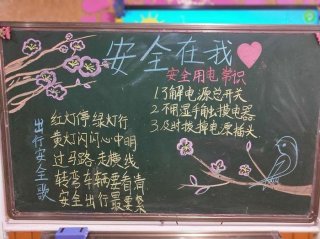 安全在我
安全用电常识
1了解电源总开关
2不用湿手触摸电器
3及时拔掉电源插头
出行安全歌
红灯停绿灯行
黄灯闪闪心中明
过马路走横线
转弯车辆要看清
安全出行最要紧